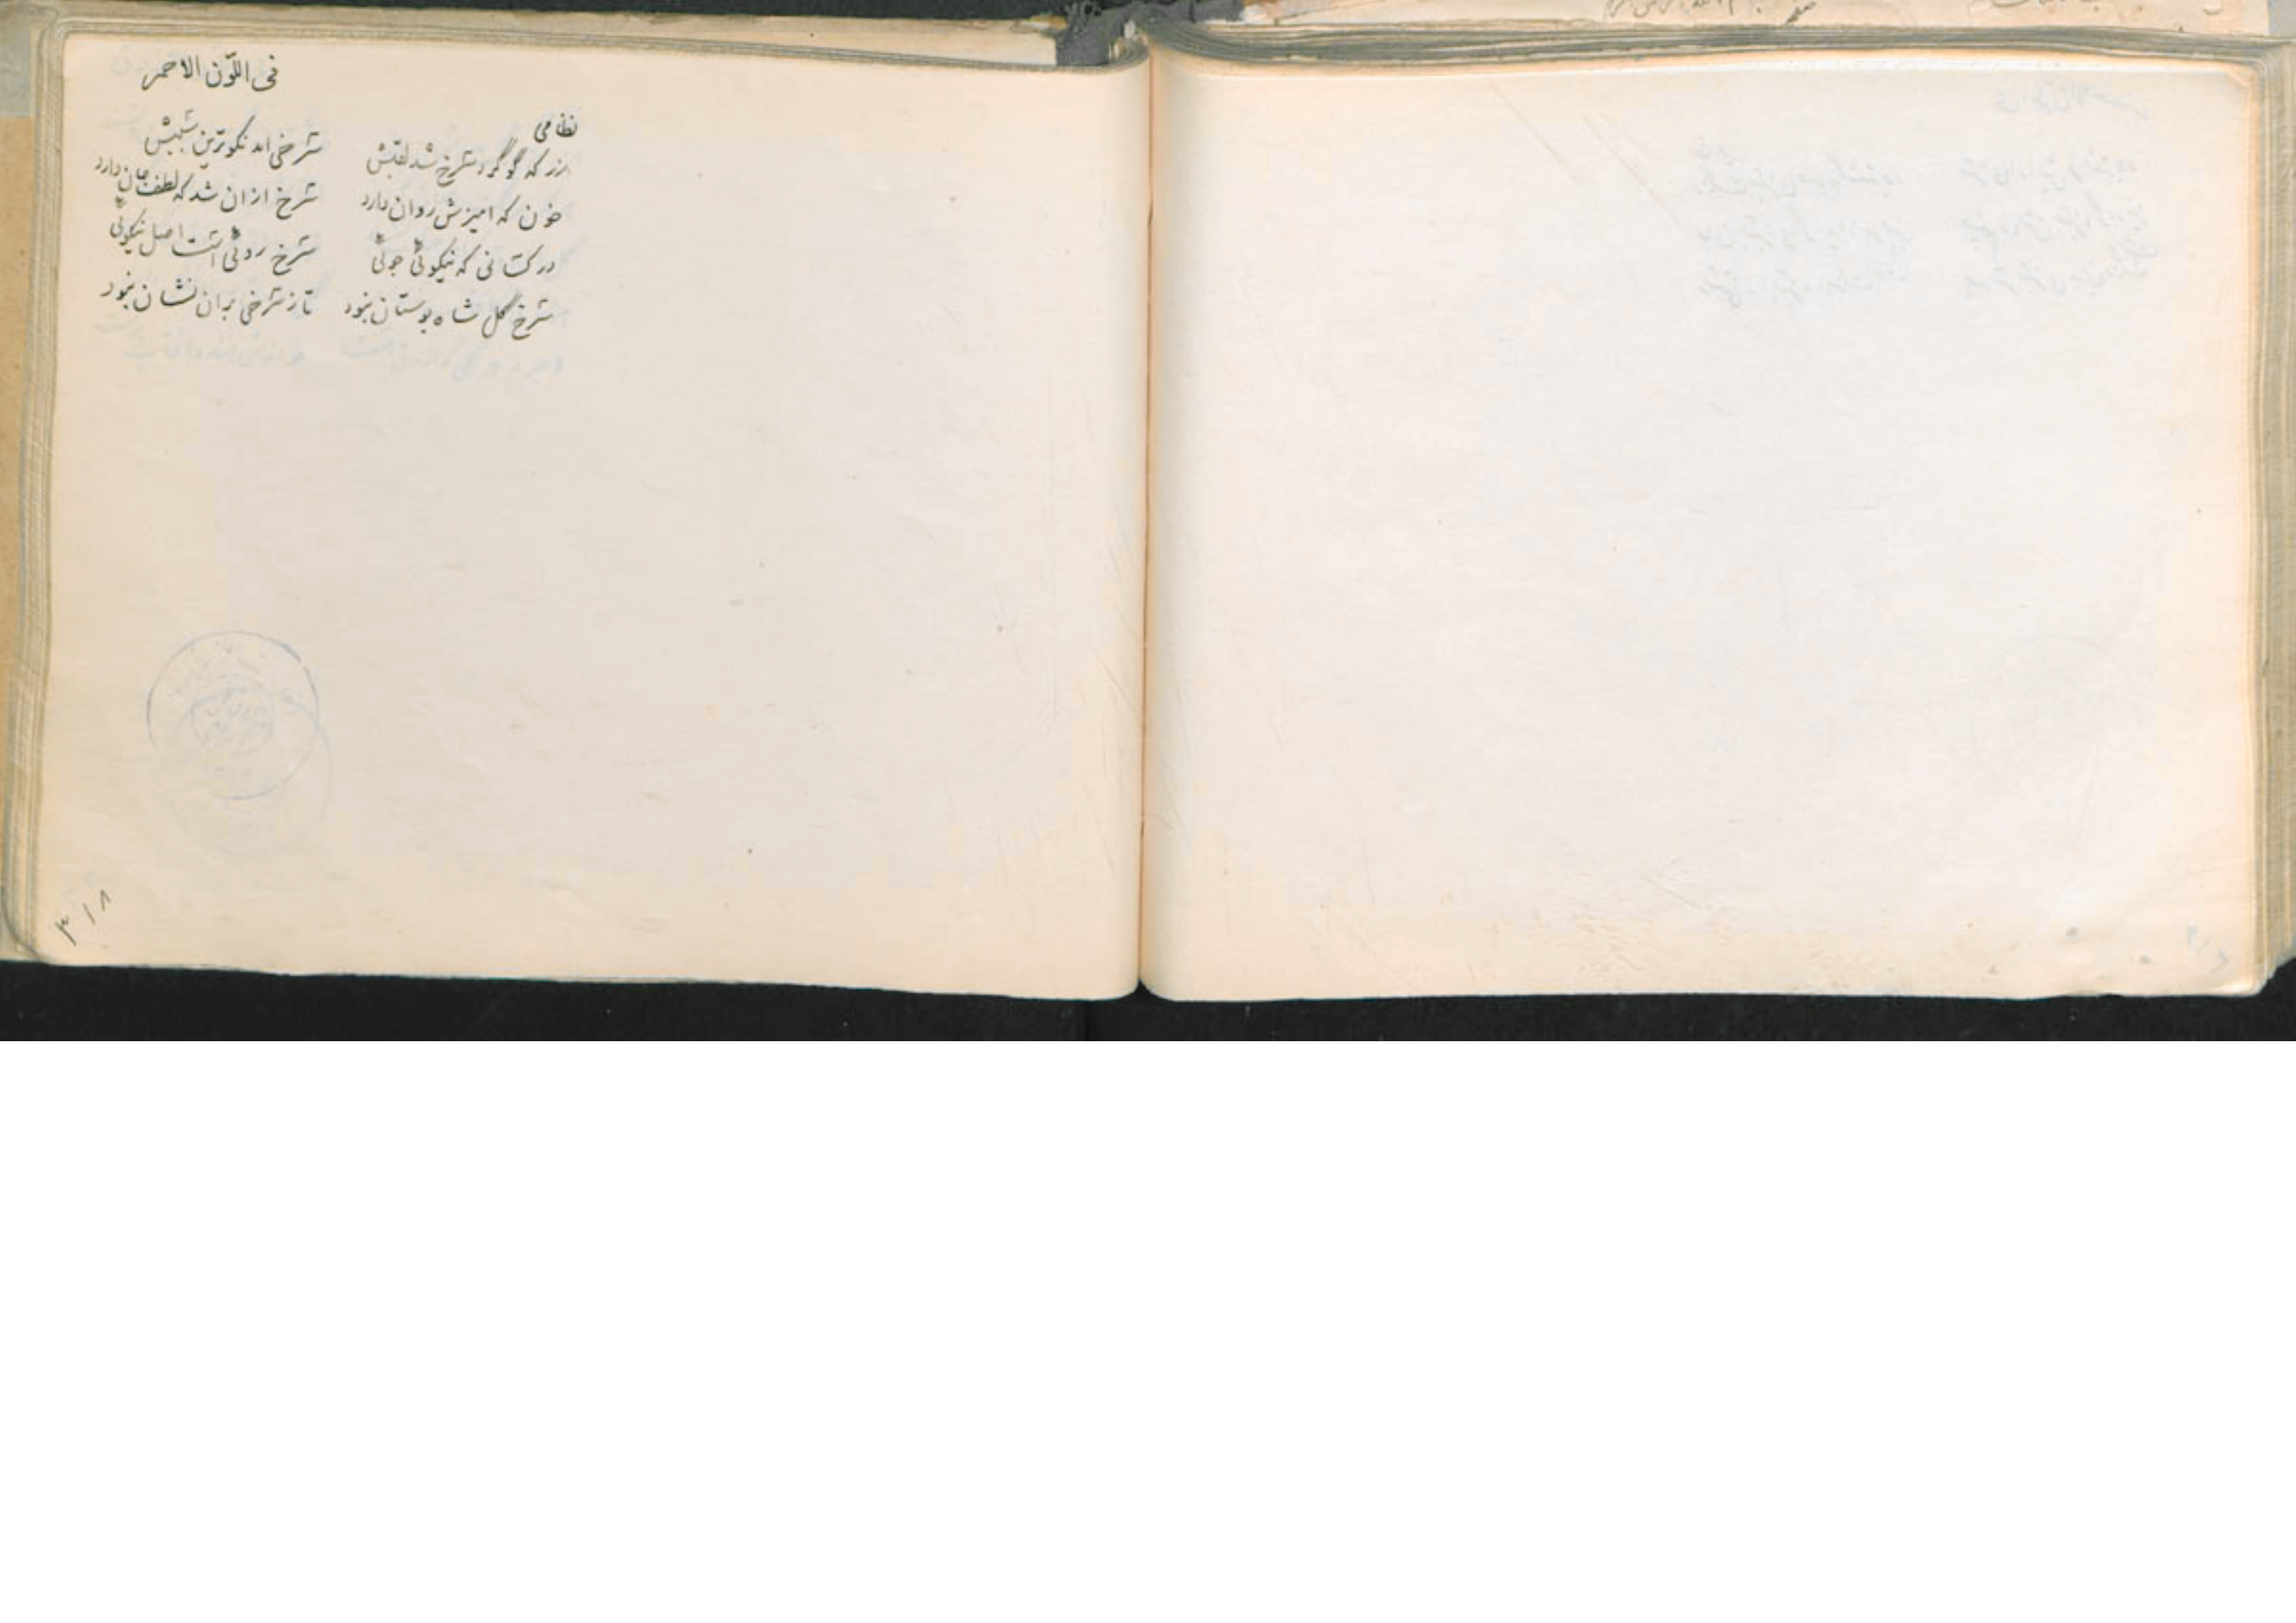 فی اللّون الاحمر
نظامی
زر که گوگرد سرخ شد لقبش سرخی امد نکوترین سلبش
خون که امیزش روان دارد سرخ ازان شد که لطف جان دارد
در کسانی که نیکوئی جوئی سرخ روئی است اصل نیکوئی
سرخ گل شاه بوستان نبود تا ز سرخی بران نشان نبود
۳۱۸